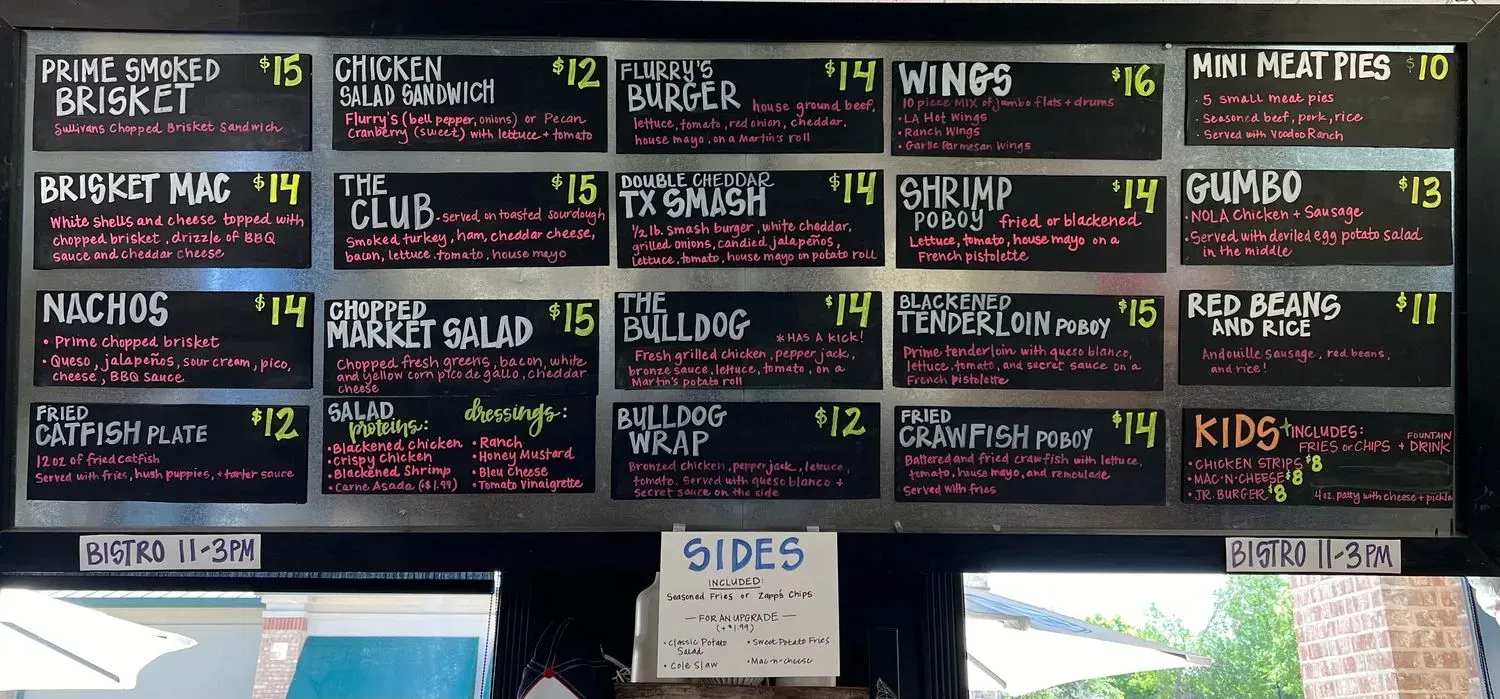 PRIME SMOKED $15
BRISKET
Sullivans Chopped Brisket Sandwich
CHICKEN $12
SALAD SANDWICH
Flurry's (bell pepper, onions) or Pecan
Cranberry (sweet) with lettuce + tomato
FLURRY'S $14
BURGER house ground beef,
lettuce, tomato, red onion, cheddar,
house mayo, on a Martin's roll
WINGS $16
10 piece MIX of jumbo flats + drums
• LA Hot Wings
• Ranch Wings
• Garlic Parmesan Wings
MINI MEAT PIES $10
• 5 small meat pies
• Seasoned beef, pork, rice
• Served with Voodoo Ranch
BRISKET MAC $14
White shells and cheese topped with
chopped brisket, drizzle of BBQ
sauce and cheddar cheese
THE $15
CLUB - served on toasted sourdough
Smoked turkey, ham, cheddar cheese,
bacon, lettuce, tomato, house mayo
DOUBLE CHEDDAR $14
TX SMASH
1/2 lb. smash burger, white cheddar,
grilled onions, candied jalapeños,
lettuce, tomato, house mayo on potato roll
SHRIMP $14
POBOY fried or blackened
Lettuce, tomato, house mayo on a
French pistolette
GUMBO $13
• NOLA Chicken + Sausage
• Served with deviled egg potato salad
in the middle
NACHOS $14
• Prime chopped brisket
• Queso, jalapeños, sour cream, pico,
cheese, BBQ sauce
CHOPPED $15
MARKET SALAD
Chopped fresh greens, bacon, white
and yellow corn pico de gallo, cheddar
cheese
THE $14
BULLDOG *HAS A KICK!
Fresh grilled chicken, pepper jack,
bronze sauce, lettuce, tomato, on a
Martin's potato roll
BLACKENED $15
TENDERLOIN POBOY
Prime tenderloin with queso blanco,
lettuce, tomato, and secret sauce on a
French pistolette
RED BEANS $11
AND RICE
Andouille sausage, red beans,
and rice!
FRIED $12
CATFISH PLATE
12 oz of fried catfish
Served with fries, hush puppies, + tarter sauce
SALAD dressings:
proteins:
• Blackened chicken • Ranch
• Crispy chicken • Honey Mustard
• Blackened Shrimp • Bleu Cheese
• Carne Asada (+$1.99) • Tomato Vinaigrette
BULLDOG $12
WRAP
Bronzed chicken, pepper jack, lettuce,
tomato. Served with queso blanco +
secret sauce on the side
FRIED $14
CRAWFISH POBOY
Battered and fried crawfish with lettuce,
tomato, house mayo, and remoulade
Served with fries
KIDS INCLUDES:
FRIES or CHIPS + FOUNTAIN DRINK
• CHICKEN STRIPS $8
• MAC•N•CHEESE $8
• JR. BURGER $8 4 oz. patty with cheese + pickle
BISTRO 11-3PM
BISTRO 11-3PM
SIDES
INCLUDED:
Seasoned Fries or Zapp's Chips
— FOR AN UPGRADE —
(+$1.99)
• Classic Potato • Sweet Potato Fries
Salad
• Cole Slaw • Mac-n-cheese